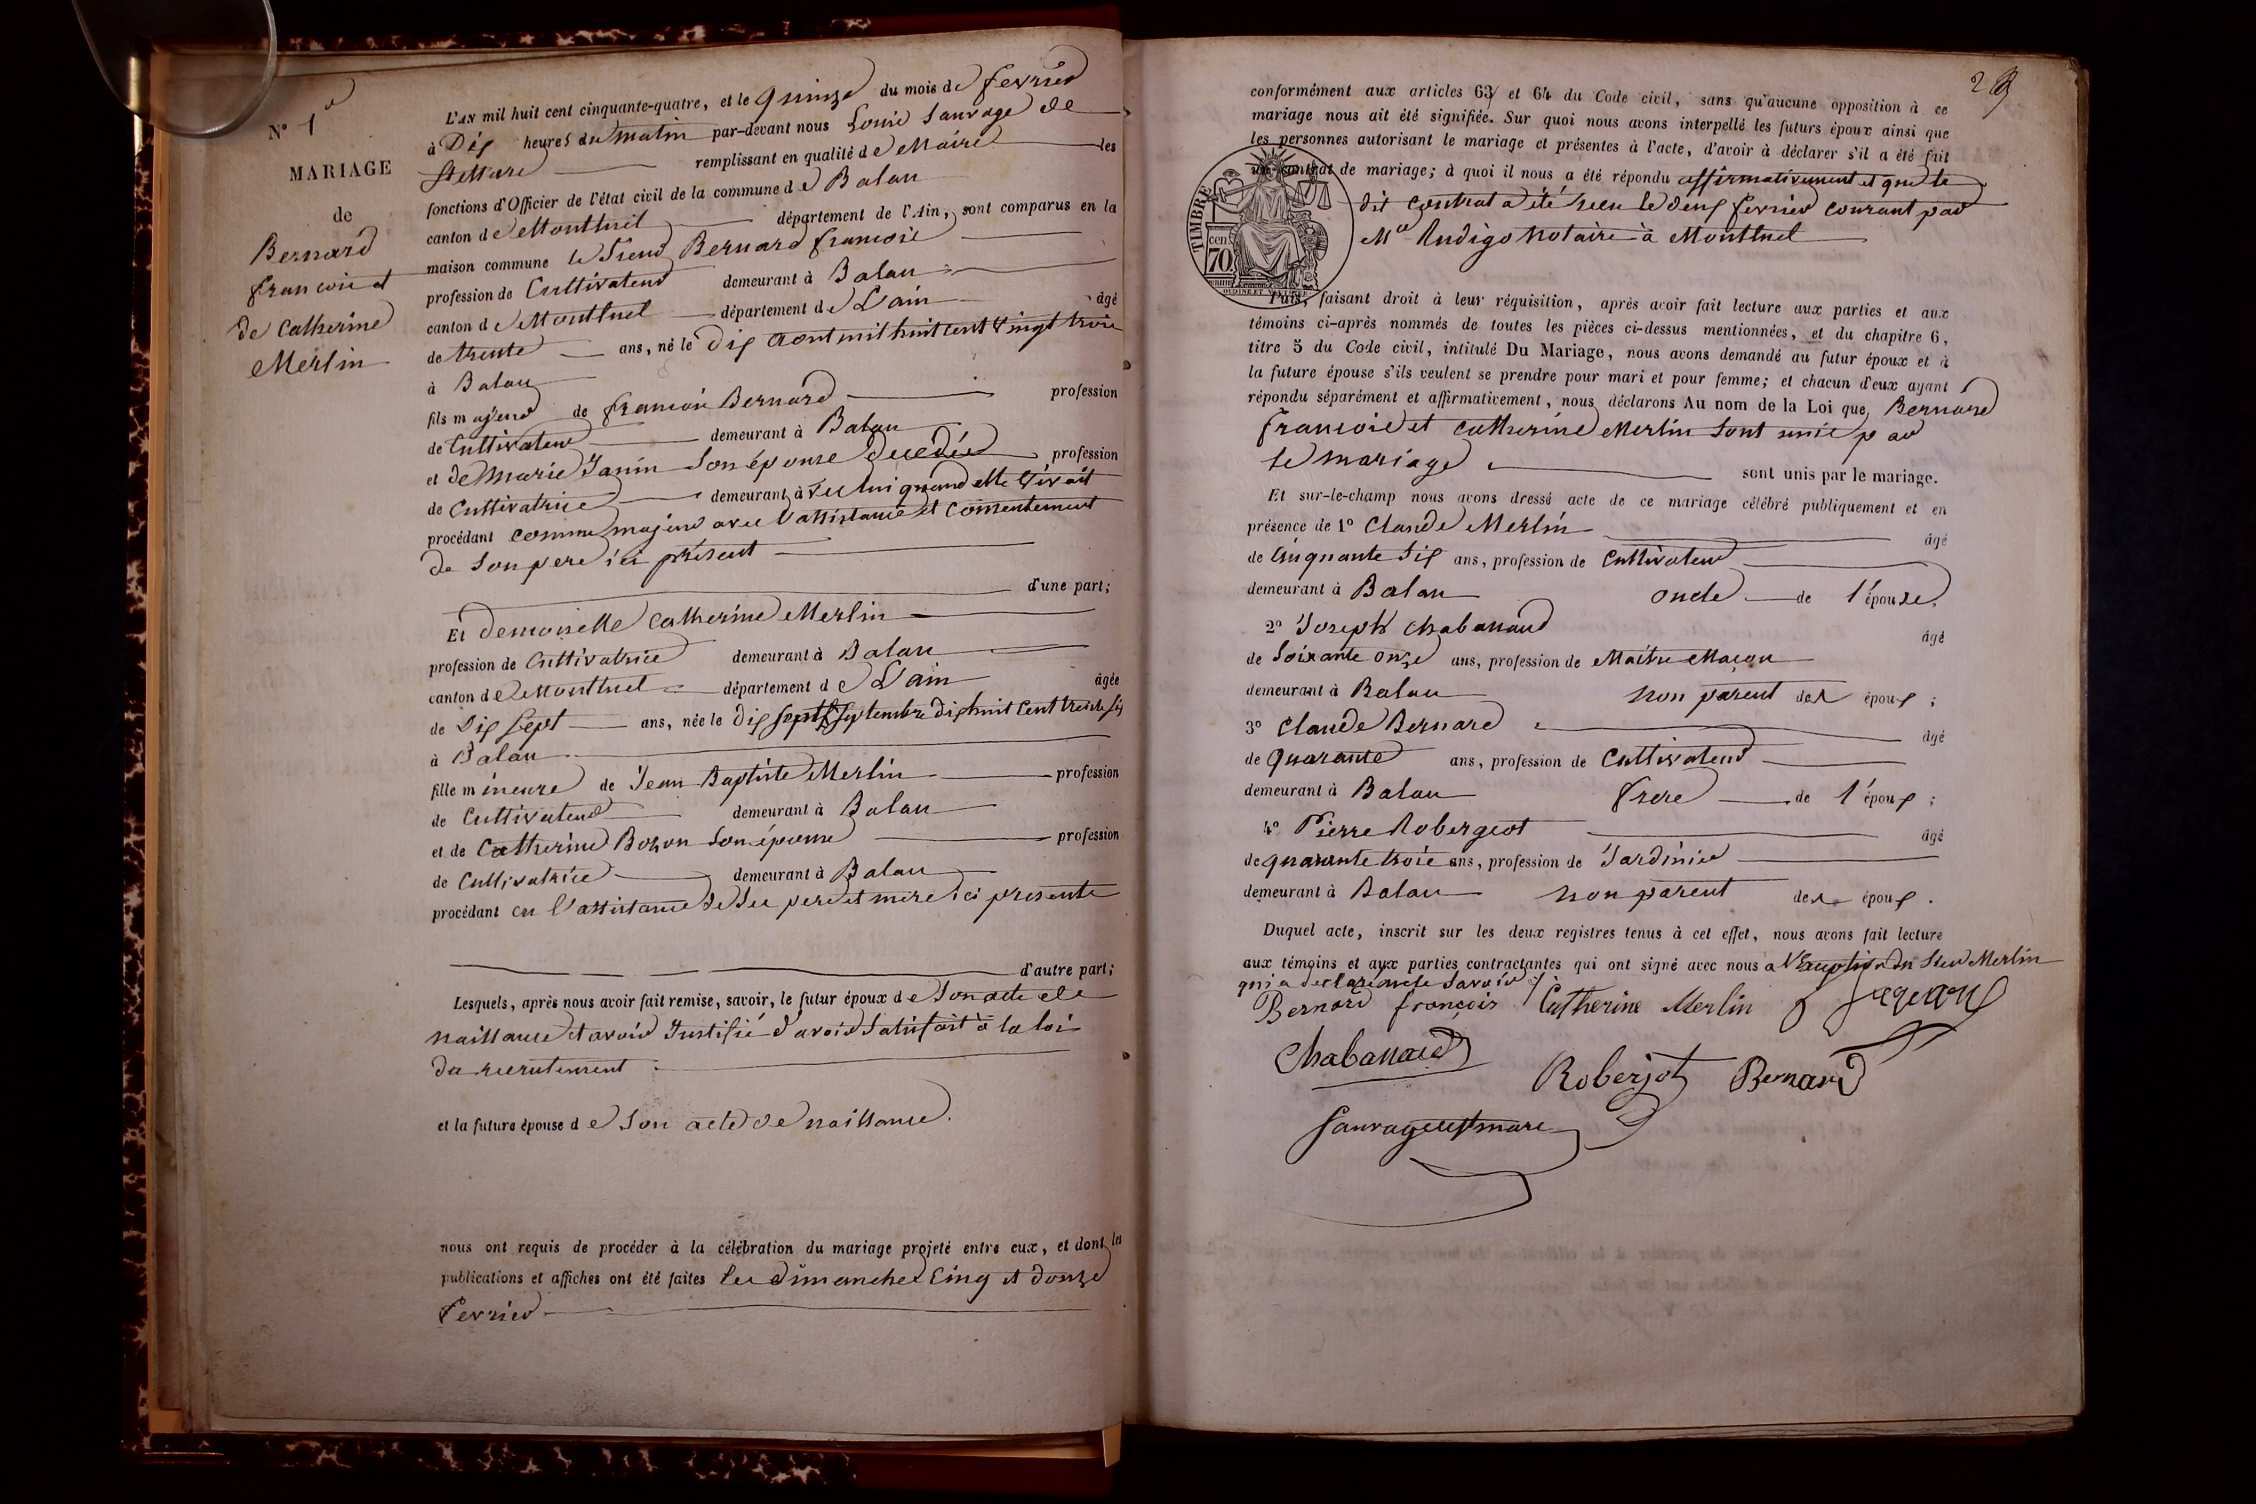 N° 1er
MARIAGE
de
Bernard
francois et
de Catherine
Merlin
L'AN mil huit cent cinquante-quatre, et le quinze du mois de fevrier
à Dix heures du matin par-devant nous Louis Sauvage de
St Mare remplissant en qualité de Maire les
fonctions d'Officier de l'état civil de la commune de Balan
canton de Montluel département de l'Ain, sont comparus en la
maison commune le Sieur Bernard francois
profession de Cultivateur demeurant à Balan
canton de Montluel département de L'ain âgé
de trente ans, né le dix aout mil huit cent vingt trois
à Balan
fils majeur de francois Bernard profession
de Cultivateur demeurant à Balan
et de Marie Janin son épouse decedée profession
de Cultivatrice demeurant à avec lui quand elle vivait
procédant comme majeur avec l'assistance et consentement
de son pere ici présent
d'une part;
Et demoiselle Catherine Merlin
profession de Cultivatrice demeurant à Balan
canton de Montluel département de L'ain âgée
de Dix sept ans, née le dix sept septembre dix huit cent trente six
à Balan
fille mineure de Jean Baptiste Merlin profession
de Cultivateur demeurant à Balan
et de Catherine Bozon son épouse profession
de Cultivatrice demeurant à Balan
procédant en l'assistance de ses pere et mere ici presents
d'autre part;
Lesquels, après nous avoir fait remise, savoir, le futur époux de son acte de
naissance et avoir Justifié d'avoir satisfait à la loi
du recrutement
et la future épouse de son acte de naissance.
nous ont requis de procéder à la célébration du mariage projeté entre eux, et dont les
publications et affiches ont été faites les dimanches cinq et douze
fevrier
2
conformément aux articles 63 et 64 du Code civil, sans qu'aucune opposition à ce
mariage nous ait été signifiée. Sur quoi nous avons interpellé les futurs époux ainsi que
les personnes autorisant le mariage et présentes à l'acte, d'avoir à déclarer s'il a été fait
un contrat de mariage; à quoi il nous a été répondu affirmativement et que le
dit contrat a été recu le deux fevrier courant par
Me Rudigo Notaire à Montluel
TIMBRE
70 cen.
Puis, faisant droit à leur réquisition, après avoir fait lecture aux parties et aux
témoins ci-après nommés de toutes les pièces ci-dessus mentionnées, et du chapitre 6,
titre 5 du Code civil, intitulé Du Mariage, nous avons demandé au futur époux et à
la future épouse s'ils veulent se prendre pour mari et pour femme; et chacun d'eux ayant
répondu séparément et affirmativement, nous déclarons Au nom de la Loi que Bernard
francois et catherine Merlin sont unis par
le mariage sont unis par le mariage.
Et sur-le-champ nous avons dressé acte de ce mariage célébré publiquement et en
présence de 1° Claude Merlin âgé
de Cinquante six ans, profession de Cultivateur
demeurant à Balan oncle de l'épouse,
2° Joseph Chabanaud âgé
de Soixante onze ans, profession de Maitre Maçon
demeurant à Balan non parent des époux;
3° Claude Bernard âgé
de Quarante ans, profession de Cultivateur
demeurant à Balan frere de l'époux;
4° Pierre Robergeot âgé
de quarante trois ans, profession de Jardinier
demeurant à Balan non parent des époux.
Duquel acte, inscrit sur les deux registres tenus à cet effet, nous avons fait lecture
aux témoins et aux parties contractantes qui ont signé avec nous a l'exception du Sieur Merlin
qui a declaré ne le savoir
Bernard françois Catherine Merlin
Chabanaud Roberjot Bernard